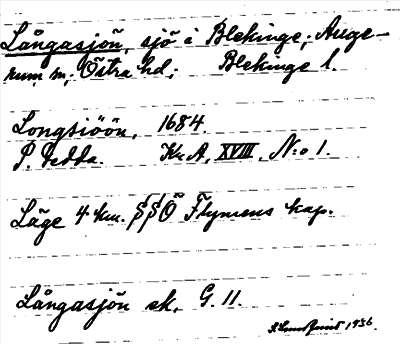 Långasjön, sjö i Blekinge; Auge-
rum sn; Östra hd; Blekinge l.
Longsiöön, 1684.
P. Gedda. Kr. A, XVIII, N:o 1.
Läge 4 km. SSO Flymens kap.
Långasjön ek, G. 11.
1936